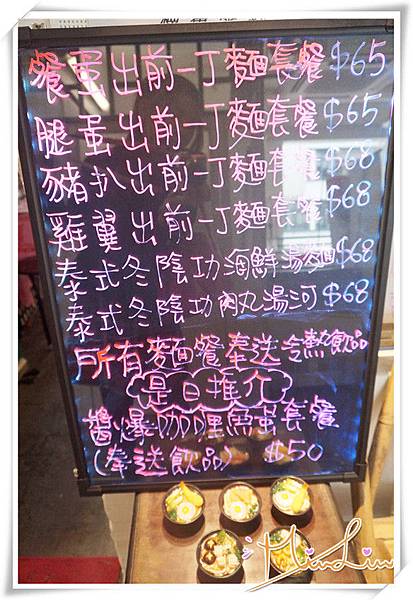 餐蛋出前一丁麵套餐 $65
腿蛋出前一丁麵套餐 $65
豬扒出前一丁麵套餐 $68
雞翼出前一丁麵套餐 $68
泰式冬陰功海鮮湯麵 $68
泰式冬陰功肉丸湯河 $68
所有麵餐奉送冷熱飲品
是日推介
醬爆咖喱魚蛋套餐
(奉送飲品) $50